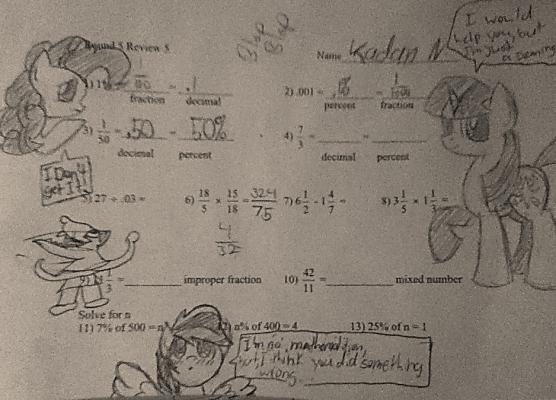 Round 5 Review 5
Name Kadan N
I would
help you, but
I'm just
a Drawing
1) 1% = 1/100 = .1
fraction decimal
2) .001 = = 1/100
percent fraction
3) 1/50 = .50 = 50%
decimal percent
4) 7/3 = =
decimal percent
I Don't
get It!
5) 27 ÷ .03 =
6) 18/5 × 15/18 = 324/75
4/32
7) 6 1/2 - 1 4/7 =
8) 3 1/5 × 1 1/3 =
9) 1/3 = improper fraction
10) 42/11 = mixed number
Solve for n
11) 7% of 500 = n
12) n% of 400 = 4
13) 25% of n = 1
I'm no mathematician,
but I think you did something
wrong...